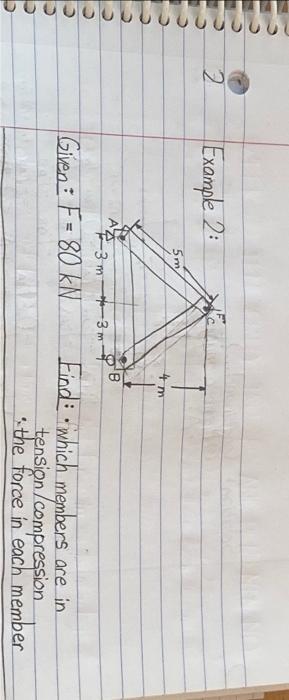 2 Example 2:
F
C
5m
4 m
A
B
3 m 3 m
Given: F = 80 kN Find: • which members are in
tension/compression
• the force in each member